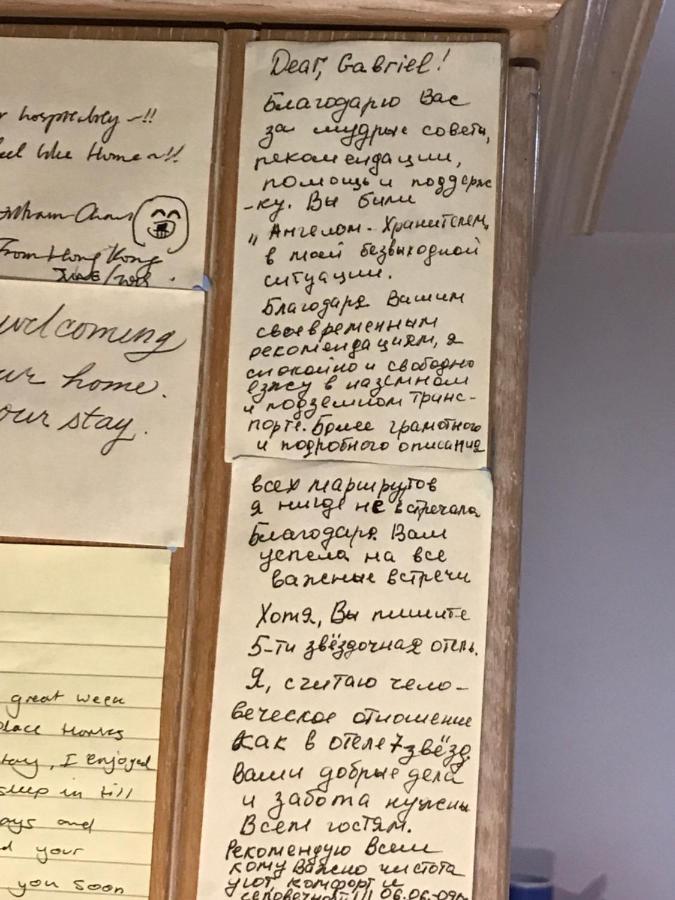 hospitality ~!!
feel like Home ~!!
From Hong Kong
welcoming
home.
your stay.
great week
place thanks
stay, I enjoyed
sleep in till
days and
your
you soon
Dear, Gabriel!
Благодарю Вас
за мудрые советы,
рекомендации,
помощь и поддерж
-ку. Вы были
„Ангелом-Хранителем,
в моей безвыходной
ситуации.
Благодаря Вашим
своевременным
рекомендациям, я
спокойно и свободно
езжу в наземном
и подземном транс-
порте. Более грамотного
и подробного описания
всех маршрутов
я нигде не встречала
Благодаря Вам
успела на все
важные встречи
Хотя, Вы пишите
5-ти звёздочная отель.
Я, считаю чело-
веческое отношение
как в отеле 7 звёзд
Ваши добрые дела
и забота нужны
Всем гостям.
Рекомендую Всем
кому Важно чистота
уют, комфорт и
человечность!!! 06.06-09г